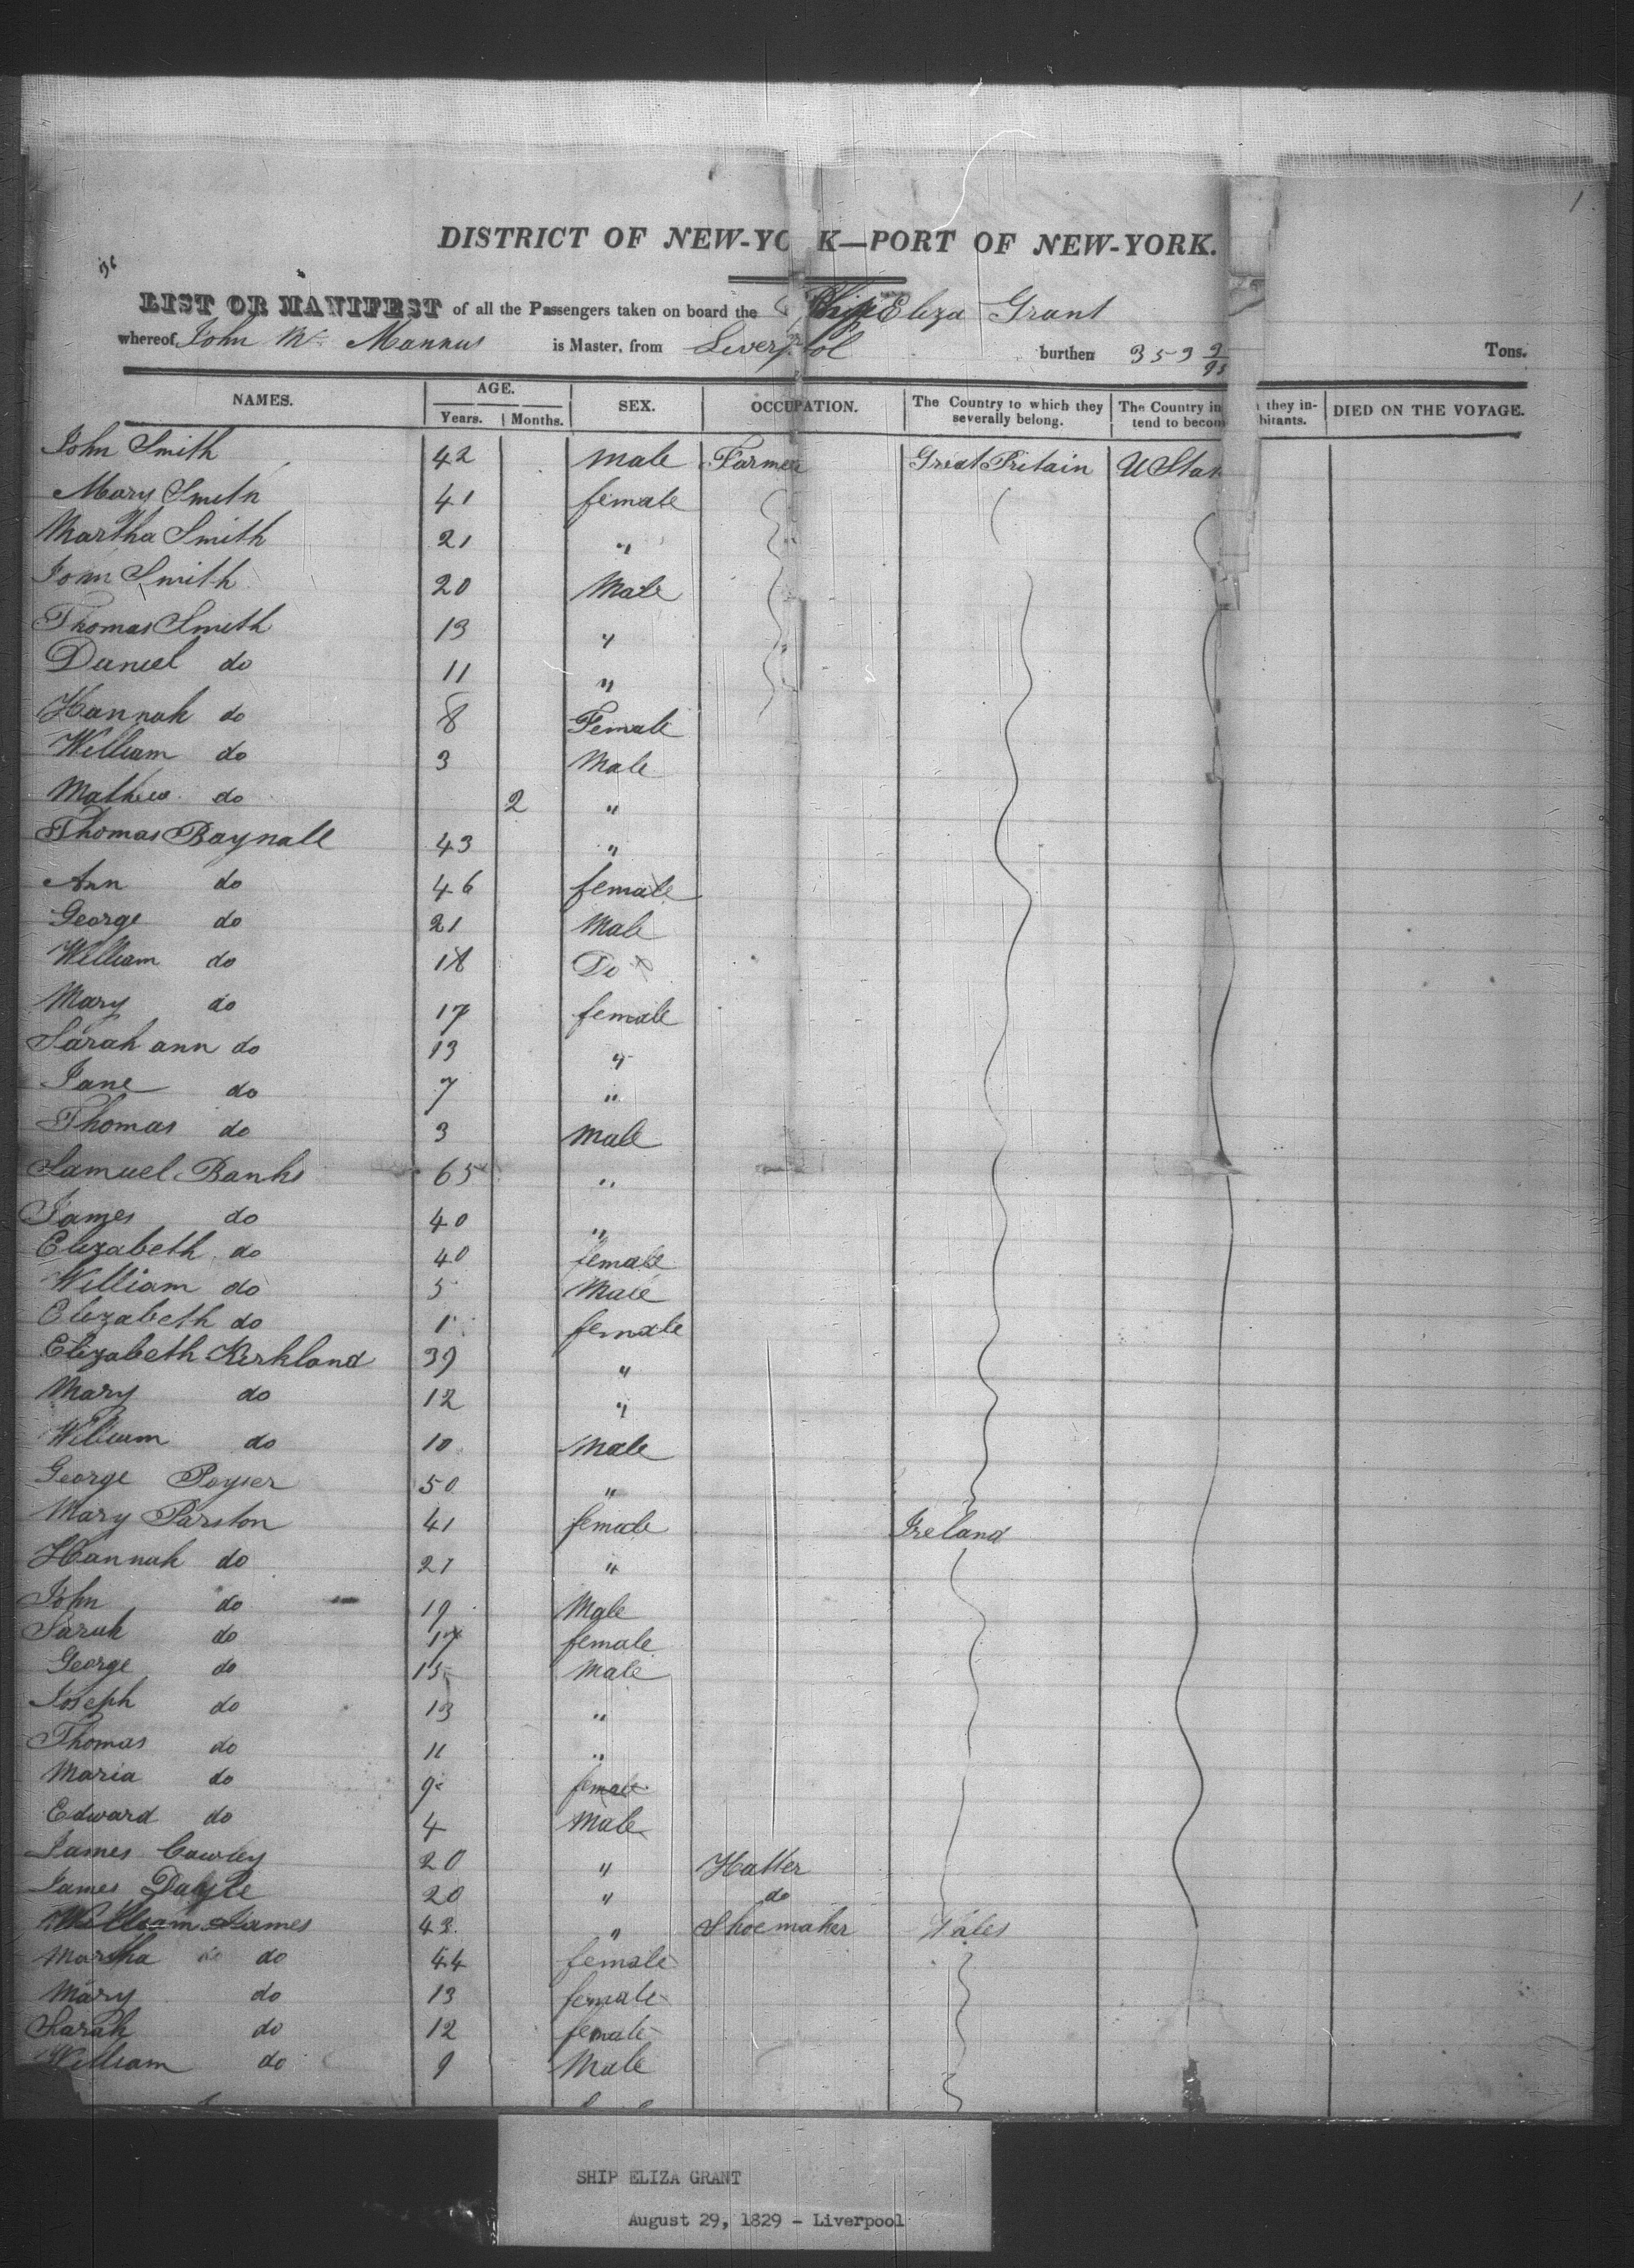 1
DISTRICT OF NEW-YO K—PORT OF NEW-YORK.
LIST OR MANIFEST of all the Passengers taken on board the Ship Eliza Grant
whereof John Mc Mannus is Master, from Liverpool burthen 353 9/95 Tons.
NAMES. AGE. SEX. OCCUPATION. The Country to which they severally belong. The Country in they in- tend to becom bitants. DIED ON THE VOYAGE.
Years. Months.
John Smith 42 Male Farmer Great Britain U Stat
Mary Smith 41 female
Martha Smith 21 "
John Smith 20 Male
Thomas Smith 13 "
Daniel do 11 "
Hannah do 8 Female
William do 3 Male
Mathew do 2 "
Thomas Baynall 43 "
Ann do 46 female
George do 21 Male
William do 18 Do
Mary do 17 female
Sarah ann do 13 "
Jane do 7 "
Thomas do 3 Male
Samuel Banks 65 "
James do 40 "
Elizabeth do 40 female
William do 5 Male
Elizabeth do 1 female
Elizabeth Kirkland 39 "
Mary do 12 "
William do 10 Male
George Poyser 50 "
Mary Parston 41 female Ireland
Hannah do 21 "
John do 19 Male
Sarah do 17 female
George do 15 Male
Joseph do 13 "
Thomas do 11 "
Maria do 9 female
Edward do 4 Male
James Cawley 20 " Hatter
James 20 " do
William James 43 " Shoemaker Wales
Martha do 44 female
Mary do 13 female
Sarah do 12 female
William do 9 Male
SHIP ELIZA GRANT
August 29, 1829 - Liverpool